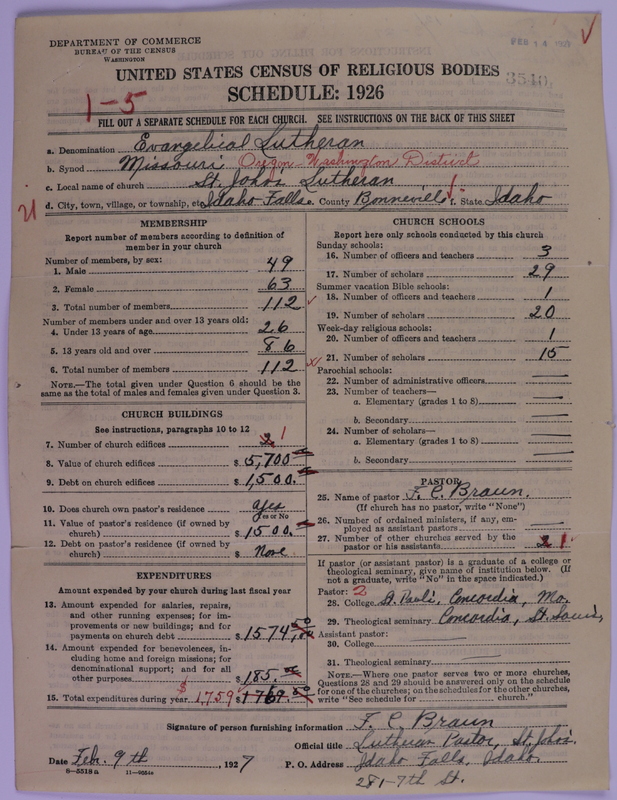 DEPARTMENT OF COMMERCE
BUREAU OF THE CENSUS
WASHINGTON
FEB 14 1927
UNITED STATES CENSUS OF RELIGIOUS BODIES
3540
SCHEDULE: 1926
1-5
FILL OUT A SEPARATE SCHEDULE FOR EACH CHURCH. SEE INSTRUCTIONS ON THE BACK OF THIS SHEET
a. Denomination Evangelical Lutheran
b. Synod Missouri Oregon-Washington District
c. Local name of church St. John's Lutheran
d. City, town, village, or township, etc. Idaho Falls e. County Bonneville f. State Idaho
MEMBERSHIP
Report number of members according to definition of
member in your church
Number of members, by sex:
1. Male 49
2. Female 63
3. Total number of members 112
Number of members under and over 13 years old:
4. Under 13 years of age 26
5. 13 years old and over 86
6. Total number of members 112
NOTE.—The total given under Question 6 should be the
same as the total of males and females given under Question 3.
CHURCH BUILDINGS
See instructions, paragraphs 10 to 12
7. Number of church edifices 1
8. Value of church edifices $ 5,700
9. Debt on church edifices $ 1,500
10. Does church own pastor's residence Yes
Yes or No
11. Value of pastor's residence (if owned by
church) $ 1500
12. Debt on pastor's residence (if owned by
church) $ None
EXPENDITURES
Amount expended by your church during last fiscal year
13. Amount expended for salaries, repairs,
and other running expenses; for im-
provements or new buildings; and for
payments on church debt $ 1574
14. Amount expended for benevolences, in-
cluding home and foreign missions; for
denominational support; and for all
other purposes $ 185
15. Total expenditures during year $ 1759
CHURCH SCHOOLS
Report here only schools conducted by this church
Sunday schools:
16. Number of officers and teachers 3
17. Number of scholars 29
Summer vacation Bible schools:
18. Number of officers and teachers 1
19. Number of scholars 20
Week-day religious schools:
20. Number of officers and teachers 1
21. Number of scholars 15
Parochial schools:
22. Number of administrative officers
23. Number of teachers—
a. Elementary (grades 1 to 8)
b. Secondary
24. Number of scholars—
a. Elementary (grades 1 to 8)
b. Secondary
PASTOR
25. Name of pastor F. C. Braun.
(If church has no pastor, write "None")
26. Number of ordained ministers, if any, em-
ployed as assistant pastors
27. Number of other churches served by the
pastor or his assistants 1
If pastor (or assistant pastor) is a graduate of a college or
theological seminary, give name of institution below. (If
not a graduate, write "No" in the space indicated.)
Pastor: 2
28. College St. Paul's, Concordia, Mo.
29. Theological seminary Concordia, St. Louis,
Assistant pastor:
30. College
31. Theological seminary
NOTE.—Where one pastor serves two or more churches,
Questions 28 and 29 should be answered only on the schedule
for one of the churches; on the schedules for the other churches,
write "See schedule for church."
Signature of person furnishing information F. C. Braun
Official title Lutheran Pastor, St. John's
Date Feb. 9th, 1927 P. O. Address Idaho Falls, Idaho.
8-5518a 11-9554a
281-7th St.